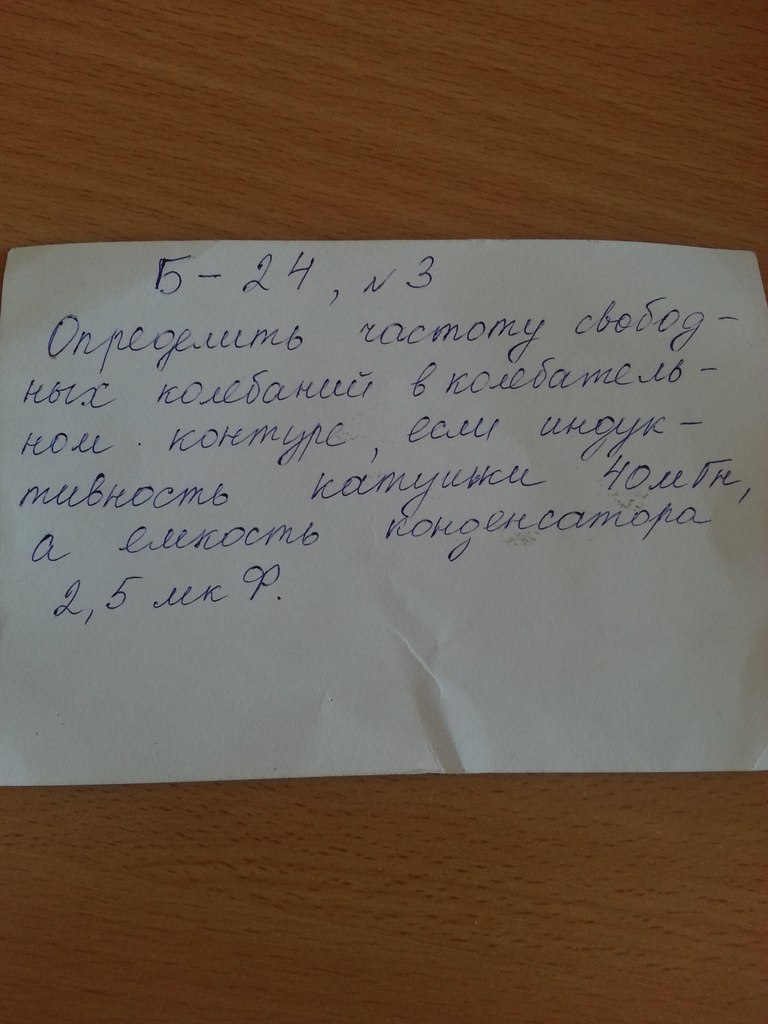 Б-24, №3
Определить частоту свобод-
ных колебаний в колебатель-
ном контуре, если индук-
тивность катушки 40мГн,
а емкость конденсатора
2,5 мк Ф.